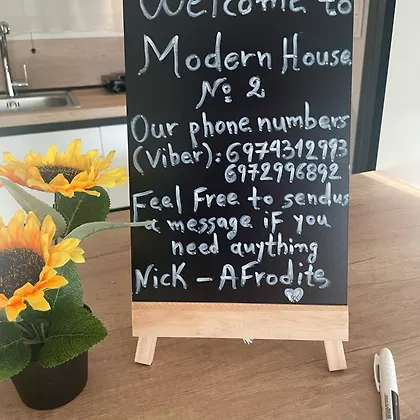 Welcome to
Modern House
№ 2
Our phone numbers
(Viber): 6974312993
6972996892
Feel Free to send us
a message if you
need anything
Nick - Afrodits